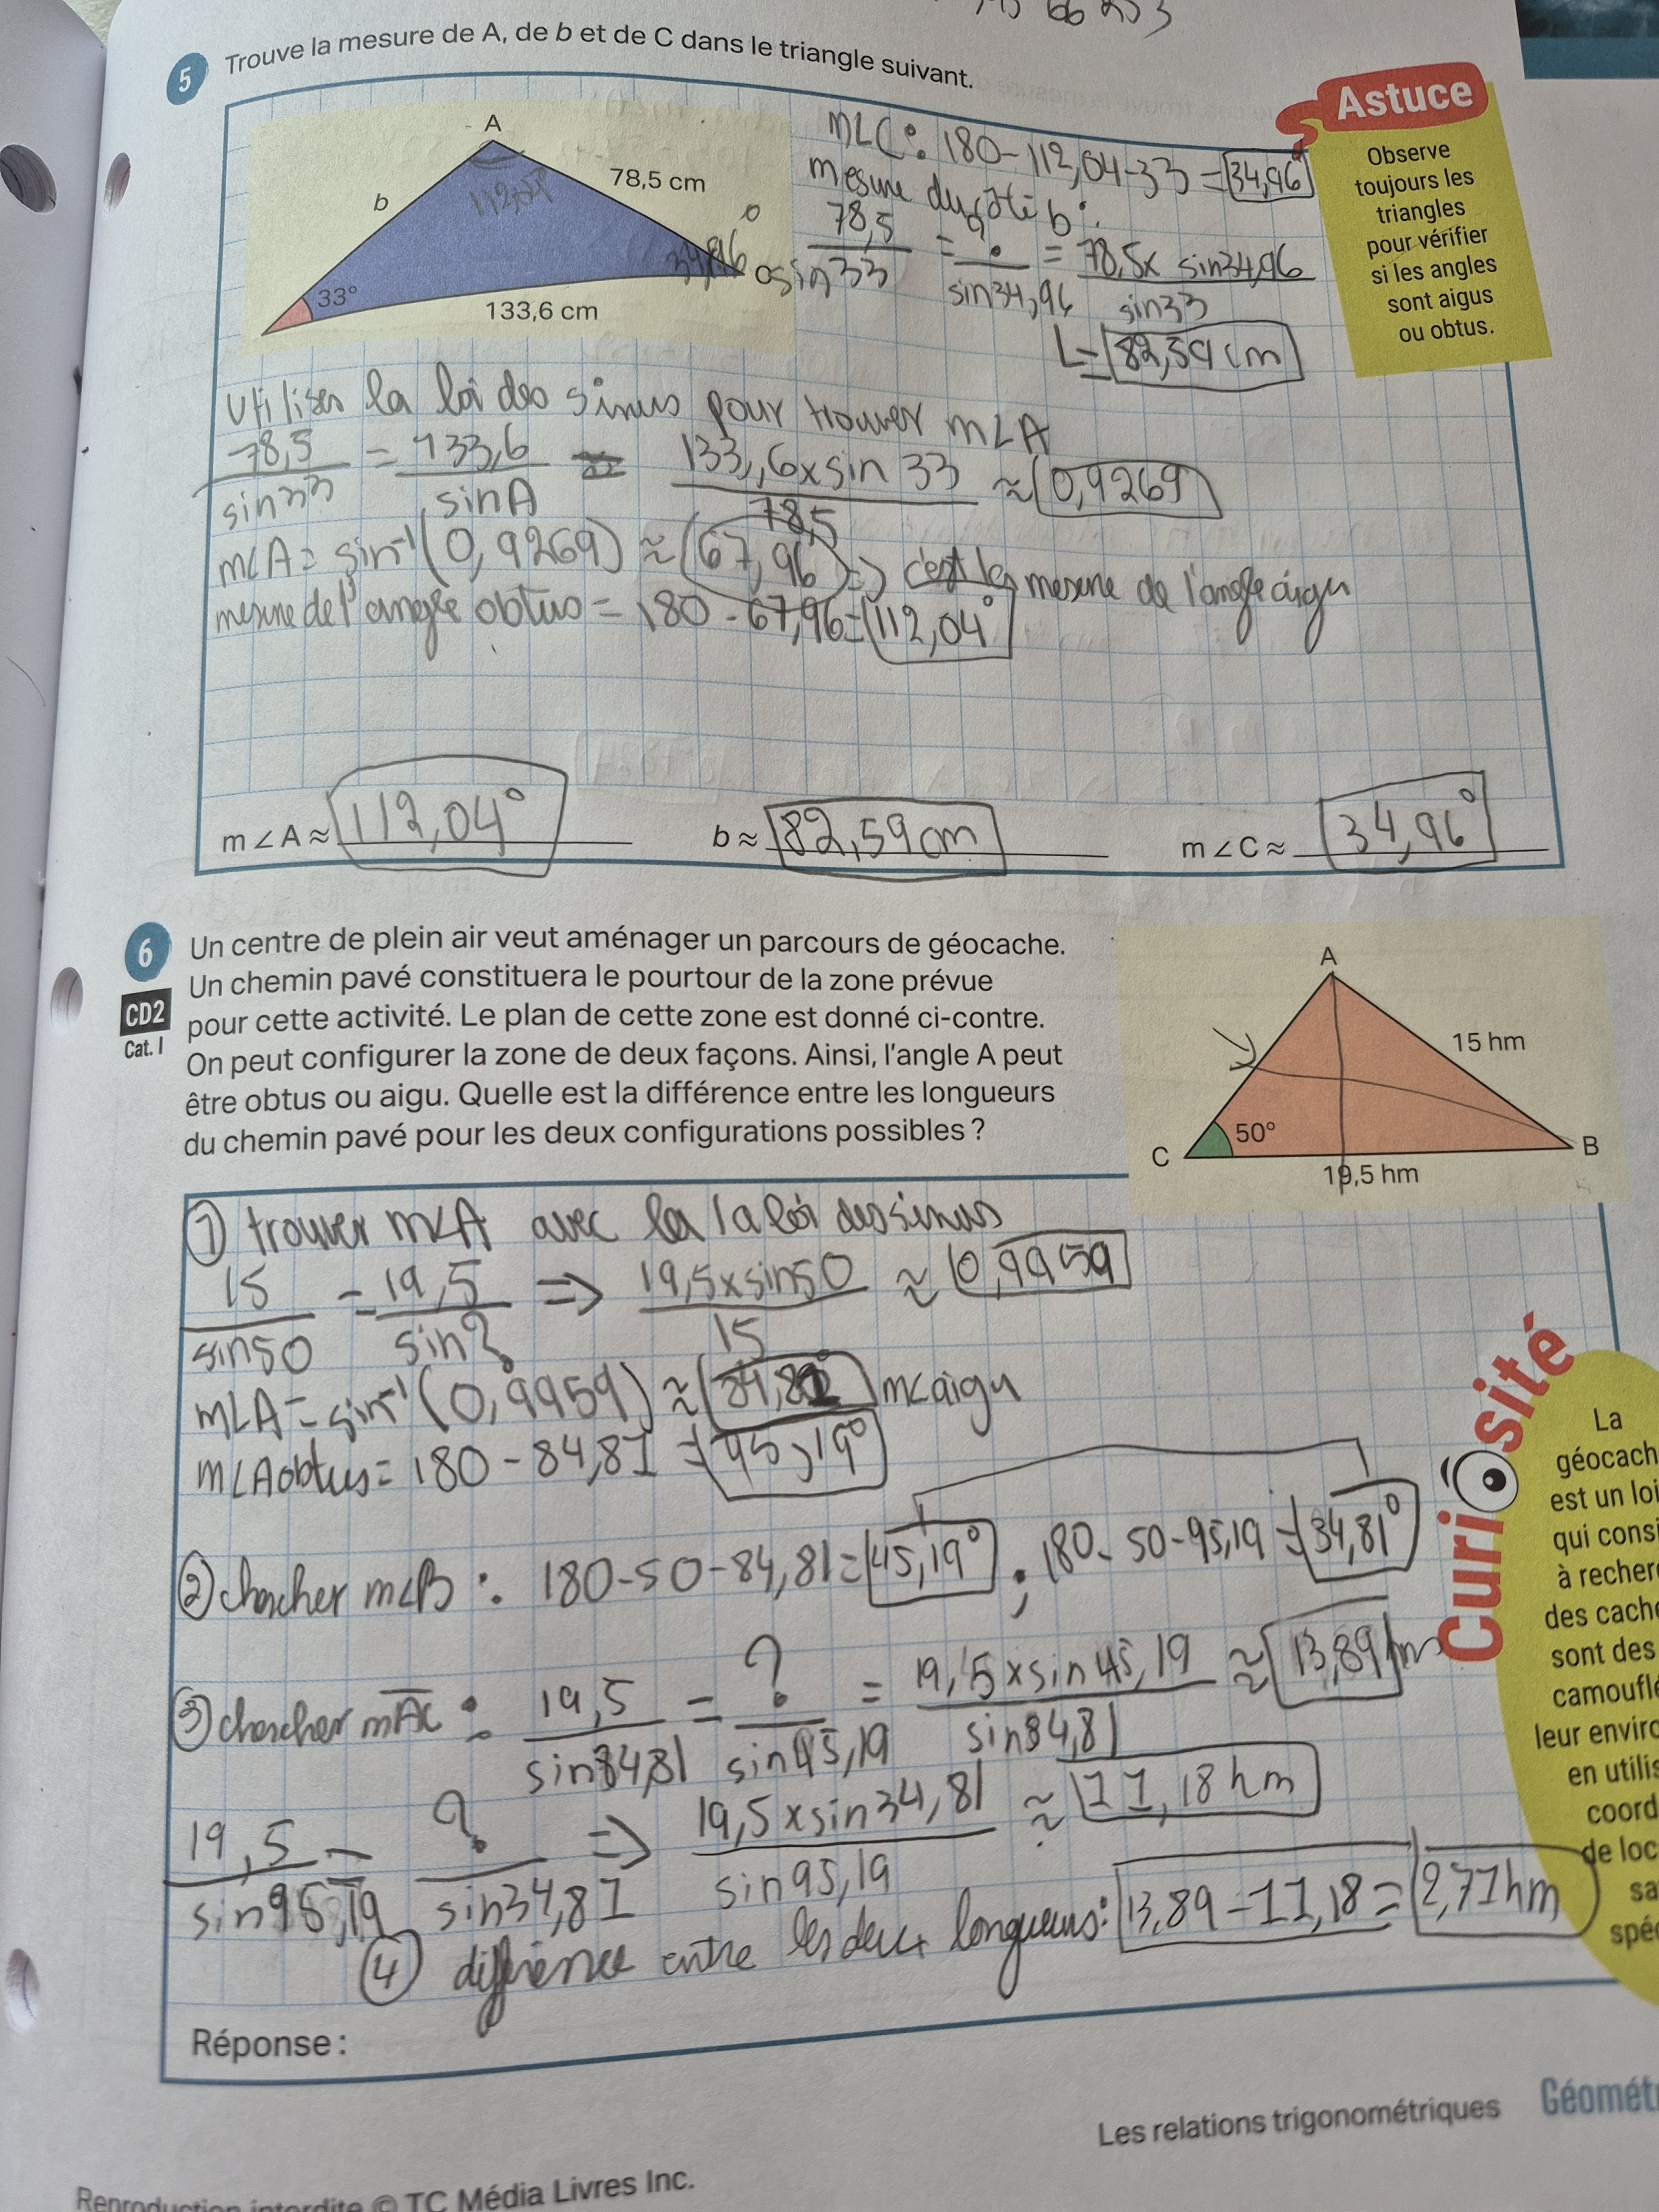 5 Trouve la mesure de A, de b et de C dans le triangle suivant.
A
b
78,5 cm
112,04°
34,96°
33°
133,6 cm
m∠C : 180-112,04-33 = 34,96°
mesure du côté b :
78,5 / sin33 = ? / sin34,96 = 78,5 x sin34,96 / sin33
= 82,59 cm
Astuce
Observe
toujours les
triangles
pour vérifier
si les angles
sont aigus
ou obtus.
Utiliser la loi des sinus pour trouver m∠A
78,5 / sin33 = 133,6 / sinA 133,6 x sin 33 / 78,5 ≈ 0,9269
m∠A = sin⁻¹(0,9269) ≈ 67,96 => c'est la mesure de l'angle aigu
mesure de l'angle obtus = 180 - 67,96 = 112,04°
m∠A ≈ 112,04°
b ≈ 82,59 cm
m∠C ≈ 34,96°
6 Un centre de plein air veut aménager un parcours de géocache.
Un chemin pavé constituera le pourtour de la zone prévue
CD2 pour cette activité. Le plan de cette zone est donné ci-contre.
Cat. I On peut configurer la zone de deux façons. Ainsi, l'angle A peut
être obtus ou aigu. Quelle est la différence entre les longueurs
du chemin pavé pour les deux configurations possibles ?
A
15 hm
50°
C
B
19,5 hm
① trouver m∠A avec la la loi des sinus
15 / sin50 = 19,5 / sin? => 19,5 x sin50 / 15 ≈ 0,9959
m∠A = sin⁻¹(0,9959) ≈ 84,81° m∠aigu
m∠A obtus = 180 - 84,81 = 95,19°
② chercher m∠B : 180-50-84,81 = 45,19° ; 180-50-95,19 = 34,81°
③ chercher mAC : 19,5 / sin84,81 = ? / sin45,19 = 19,5 x sin45,19 / sin84,81 ≈ 13,89 hm
19,5 / sin95,19 = ? / sin34,81 => 19,5 x sin34,81 / sin95,19 ≈ 11,18 hm
④ différence entre les deux longueurs : 13,89 - 11,18 = 2,71 hm
Réponse :
Curiosité
La
géocach
est un loi
qui consi
à recher
des cache
sont des
camouflé
leur enviro
en utilis
coord
de loc
sa
spéc
Les relations trigonométriques Géomét
Reproduction interdite © TC Média Livres Inc.